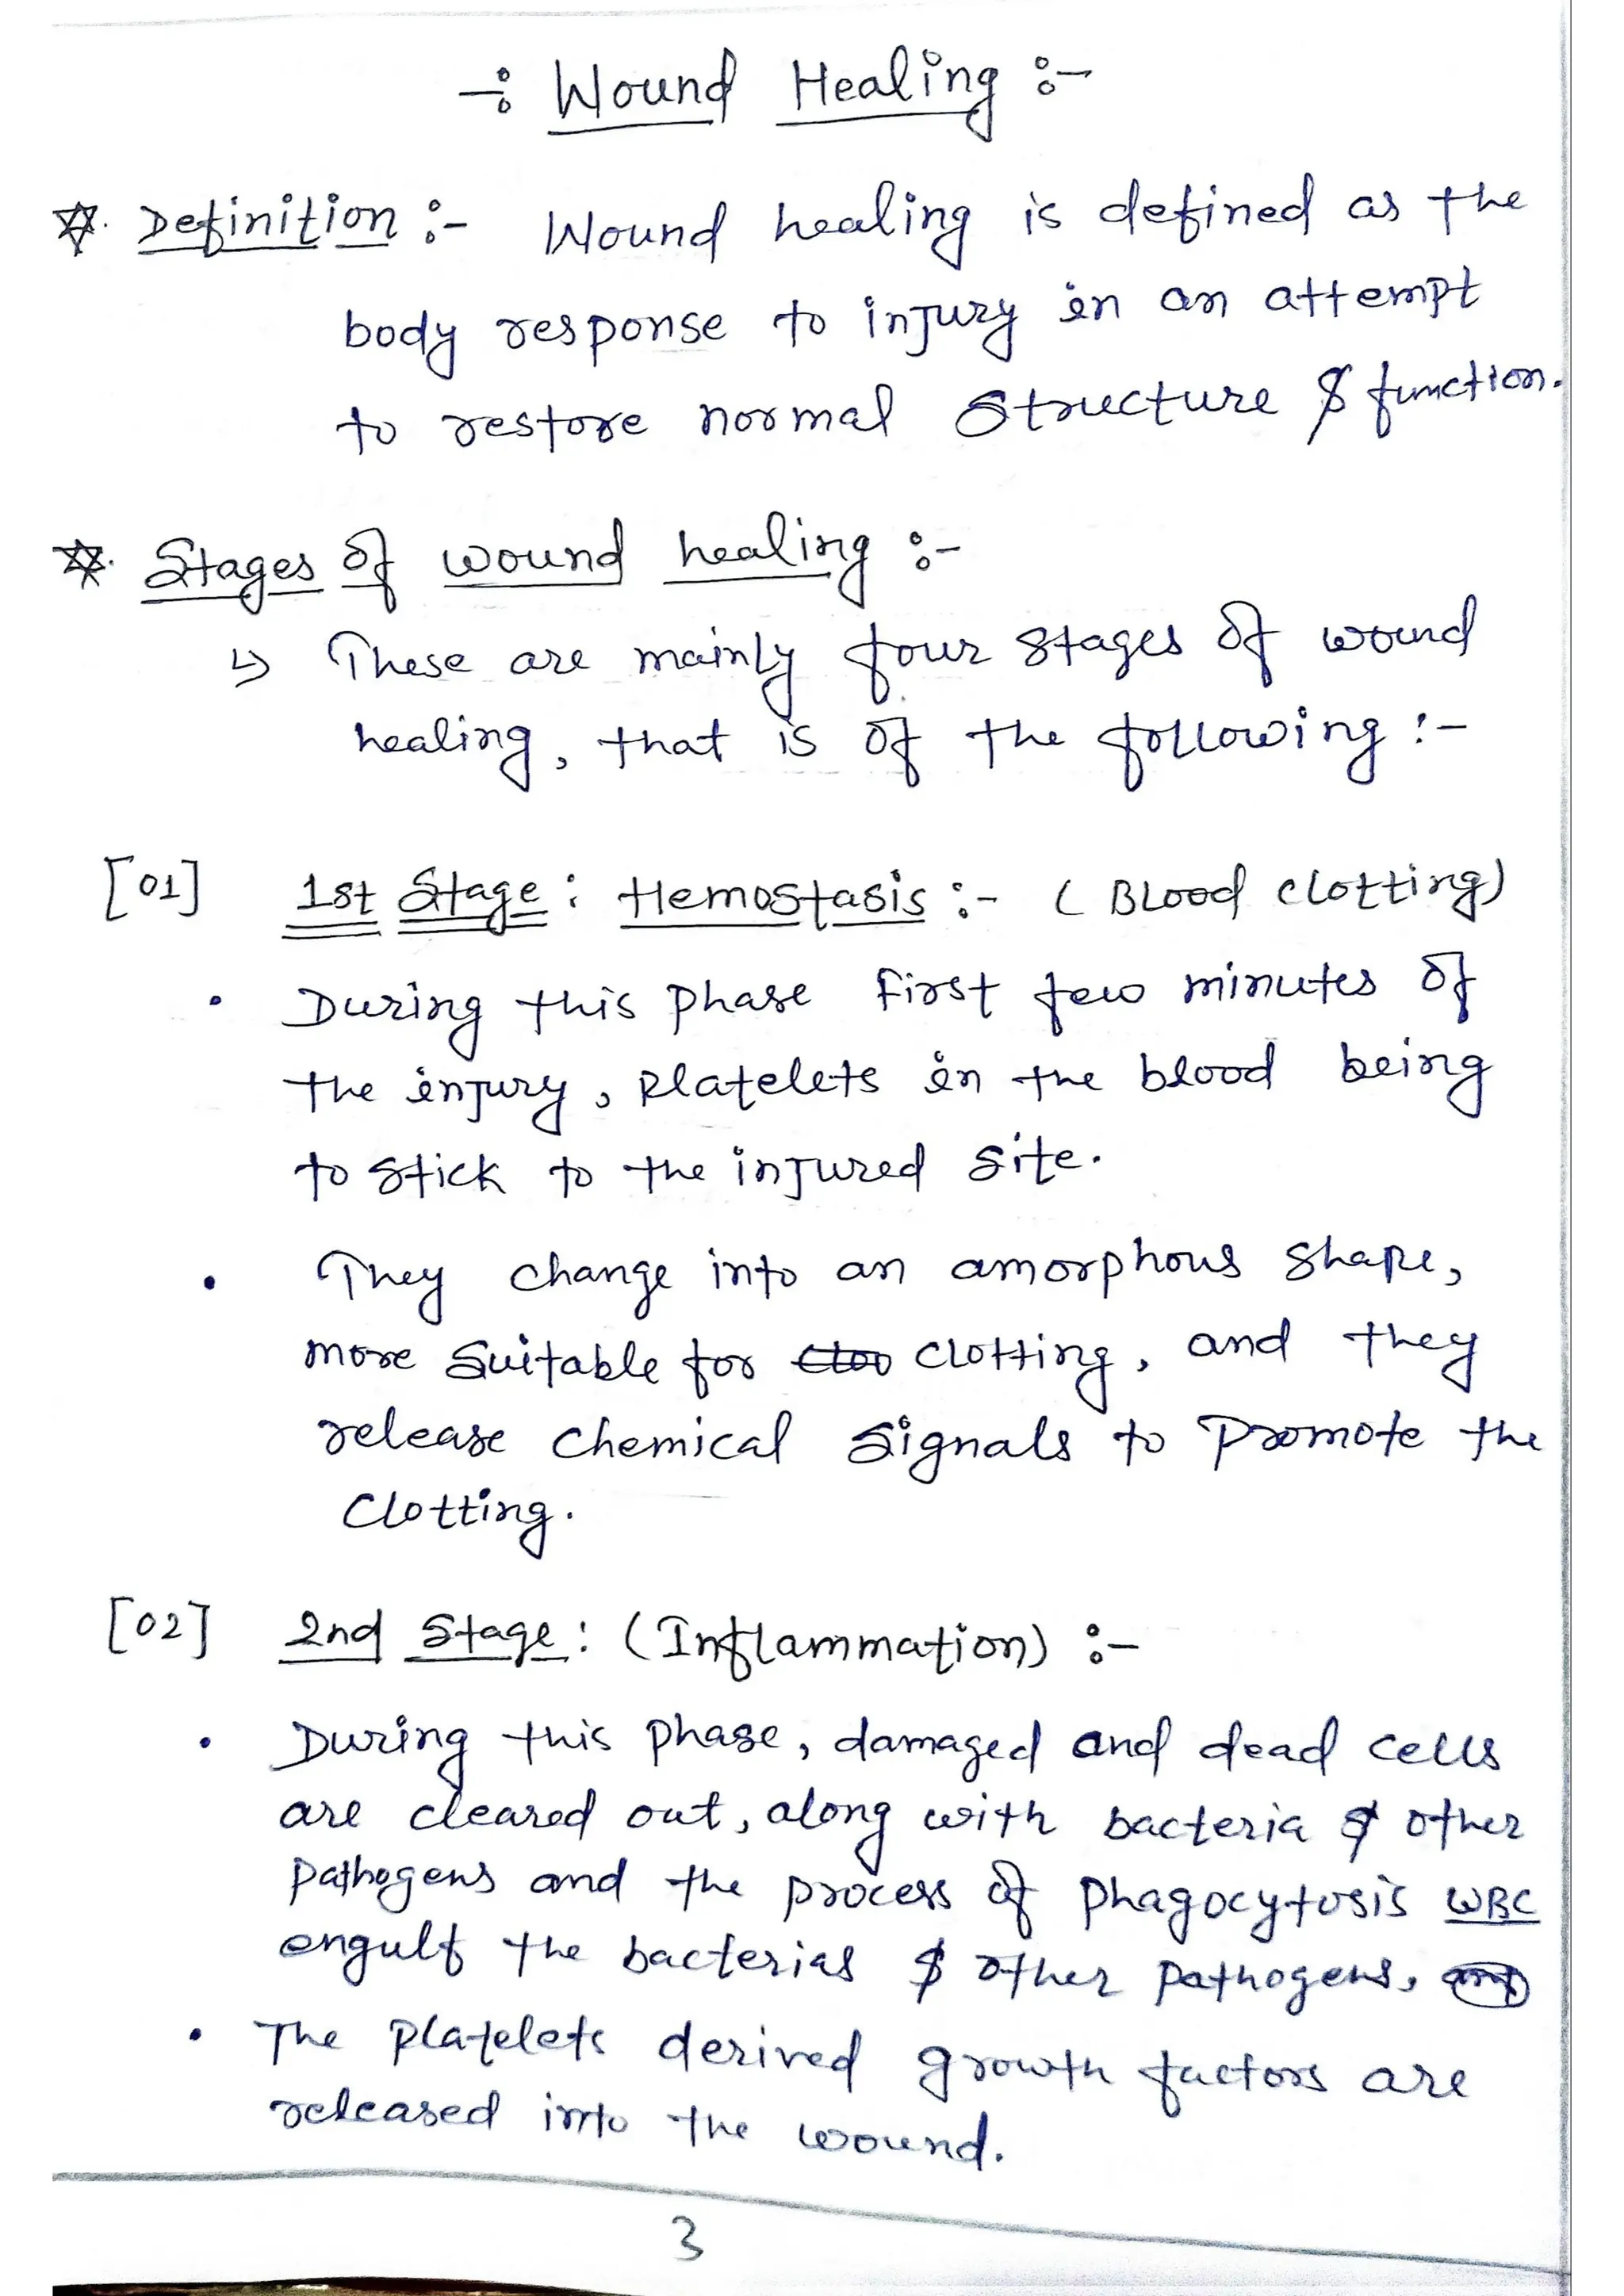 -: Wound Healing :-
☆. Definition :- Wound healing is defined as the
body response to injury in an attempt
to restore normal structure & function.
☆. Stages of wound healing :-
↳ These are mainly four stages of wound
healing, that is of the following :-
[01] 1st Stage : Hemostasis :- (Blood clotting)
• During this phase first few minutes of
the injury, platelets in the blood being
to stick to the injured site.
• They change into an amorphous shape,
more suitable for clotting, and they
release chemical signals to promote the
clotting.
[02] 2nd Stage : (Inflammation) :-
• During this phase, damaged and dead cells
are cleared out, along with bacteria & other
pathogens and the process of phagocytosis WBC
engulf the bacterias & other pathogens,
• The platelets derived growth factors are
released into the wound.
3